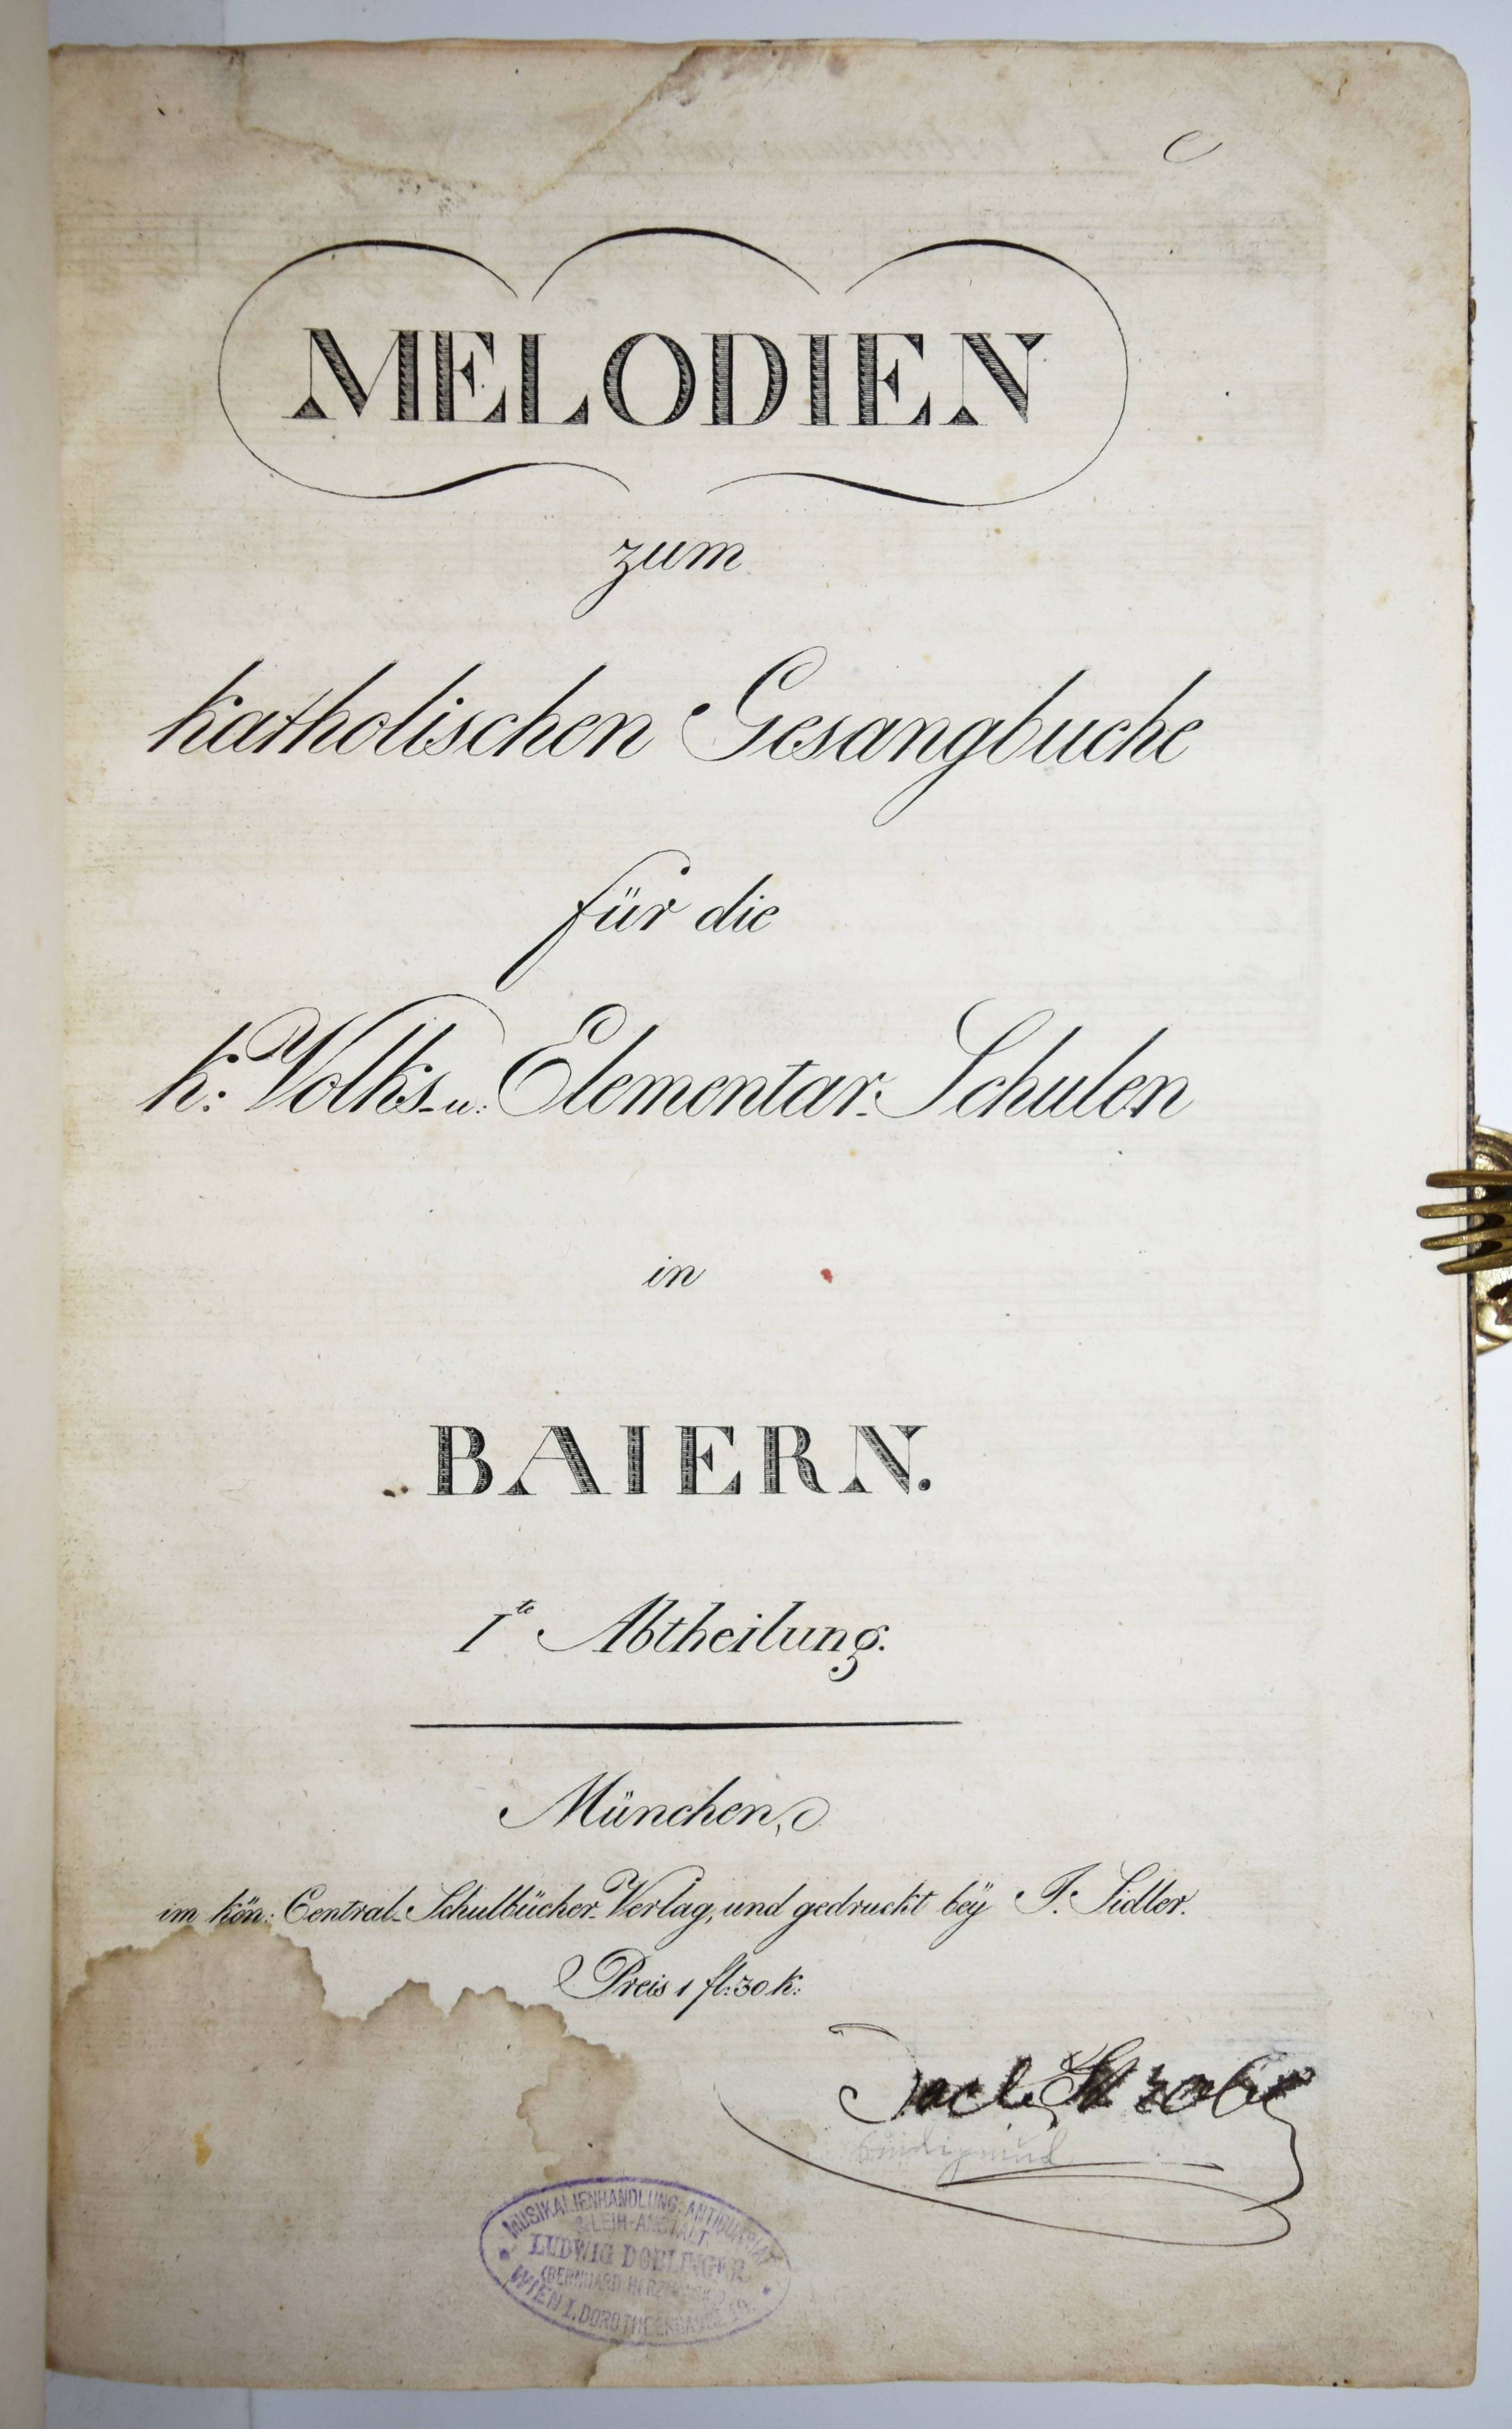 MELODIEN
zum
katholischen Gesangbuche
für die
k: Volks-u: Elementar-Schulen
in
BAIERN.
I.te Abtheilung.
München,
im kön: Central-Schulbücher-Verlag, und gedruckt beÿ F. Sidler.
Preis 1 fl: 30 k:
MUSIKALIENHANDLUNG, ANTIQUARIAT
& LEIH-ANSTALT
LUDWIG DOBLINGER
(BERNHARD HERZMANSKY)
WIEN I. DOROTHEERGASSE 10.